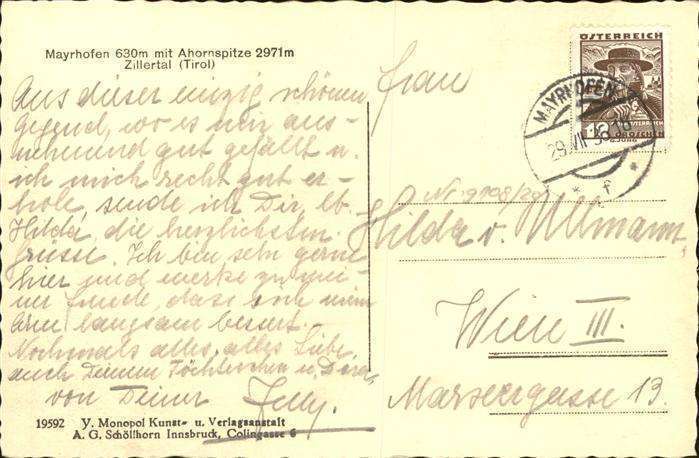 Mayrhofen 630m mit Ahornspitze 2971m
Zillertal (Tirol)
Aus dieser einzig schönen
Gegend, wo es mir aus-
nehmend gut gefällt u.
ich mich recht gut er-
hole sende ich Dir, lb.
Hilda, die herzlichsten
Grüsse. Ich bin sehr gerne
hier und merke zu mei-
ner Freude, dass sich mein
Arm langsam bessert.
Nochmals alles, alles Liebe,
auch Deinem Töchterchen u.
von Deiner
19592 V. Monopol Kunst- u. Verlagsanstalt
A. G. Schöllhorn Innsbruck, Colingasse 6
ÖSTERREICH
MAYRHOFEN
29.VII
Frau
Hilda v. Ullmann
Wien III.
Marxergasse 13.